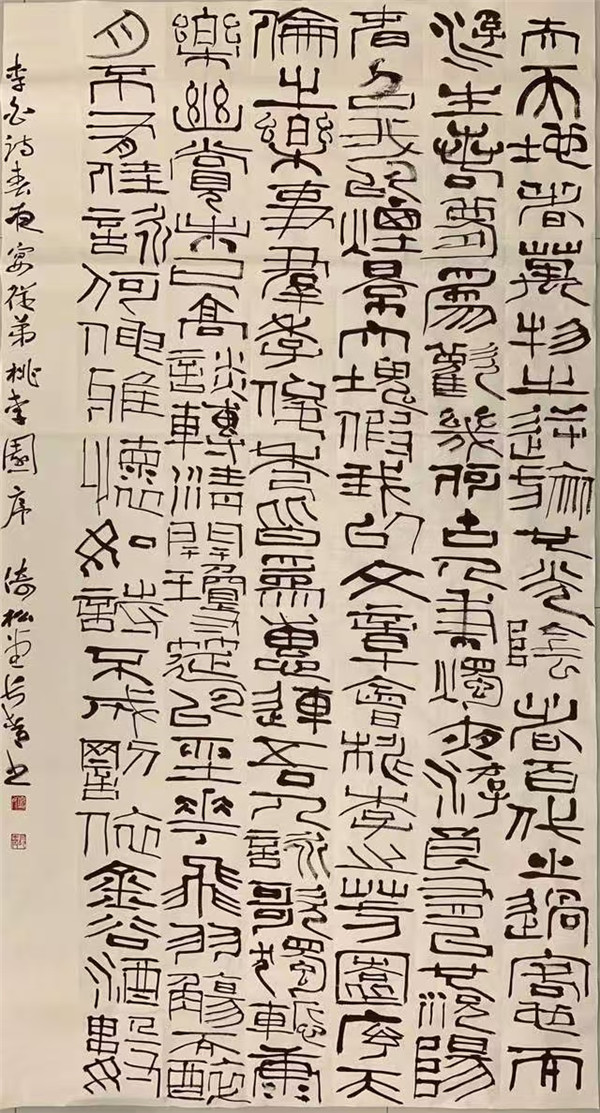 夫天地者萬物之逆旅也光陰者百代之過客也而
浮生若夢為歡幾何古人秉燭夜游良有以也況陽
春召我以煙景大塊假我以文章會桃李之芳園序天
倫之樂事群季俊秀皆為惠連吾人詠歌獨慚康
樂幽賞未已高談轉清開瓊筵以坐花飛羽觴而醉
月不有佳詠何伸雅懷如詩不成罰依金谷酒數
李白詩春夜宴從弟桃李園序 倚松堂 書